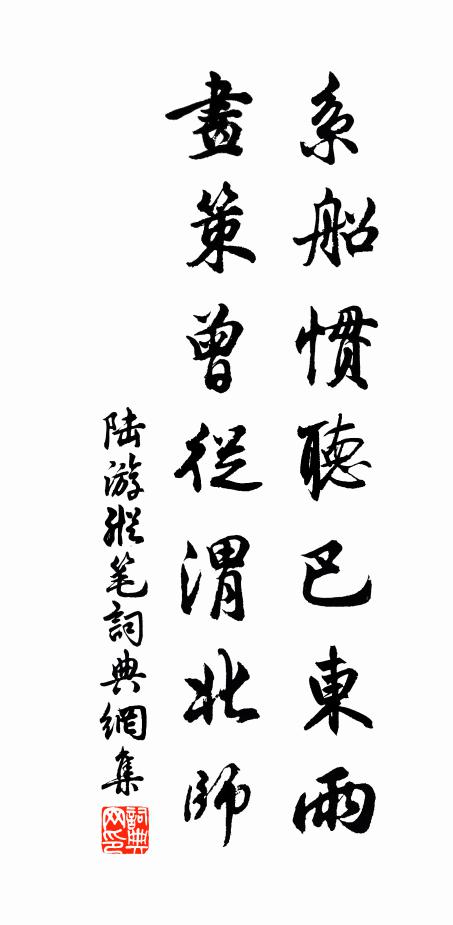 系船慣聽巴東雨
畫策曾從渭北師
陆游縱笔詞典網集
詞典网印